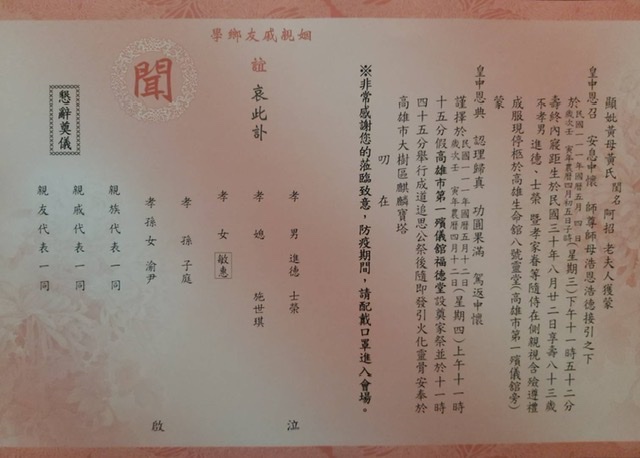 顯妣黃母黃氏 閨名 阿招 老夫人獲蒙
皇中恩召 安息中懷 師尊師母浩恩浩德接引之下
於民國一一一年國曆五月四日(星期三)下午十一時五十二分
歲次壬寅年農曆四月初五日子時
壽終內寢距生於民國三十年八月廿二日享壽八十三歲
不孝男 進德、士榮 暨孝家眷等隨侍在側親視含殮遵禮
成服現停柩於高雄生命館八號靈堂(高雄市第一殯儀館旁)
蒙
皇中恩典 認理歸真 功圓果滿 駕返中懷
謹擇於民國一一一年國曆五月十二日(星期四)上午十一時
歲次壬寅年農曆四月十二日
十五分假高雄市第一殯儀館福德堂設奠家祭並於十一時
四十五分舉行成道追思公祭後隨即發引火化靈骨安奉於
高雄市大樹區麒麟寶塔
叨 在
※非常感謝您的蒞臨致意，防疫期間，請配戴口罩進入會場。
姻親戚友鄉學
誼 哀此訃
聞
孝男 進德 士榮
孝媳 施世琪
孝女 敏惠
孝孫 子庭
孝孫女 渝尹
泣
啟
親族代表一同
親戚代表一同
親友代表一同
懇辭奠儀